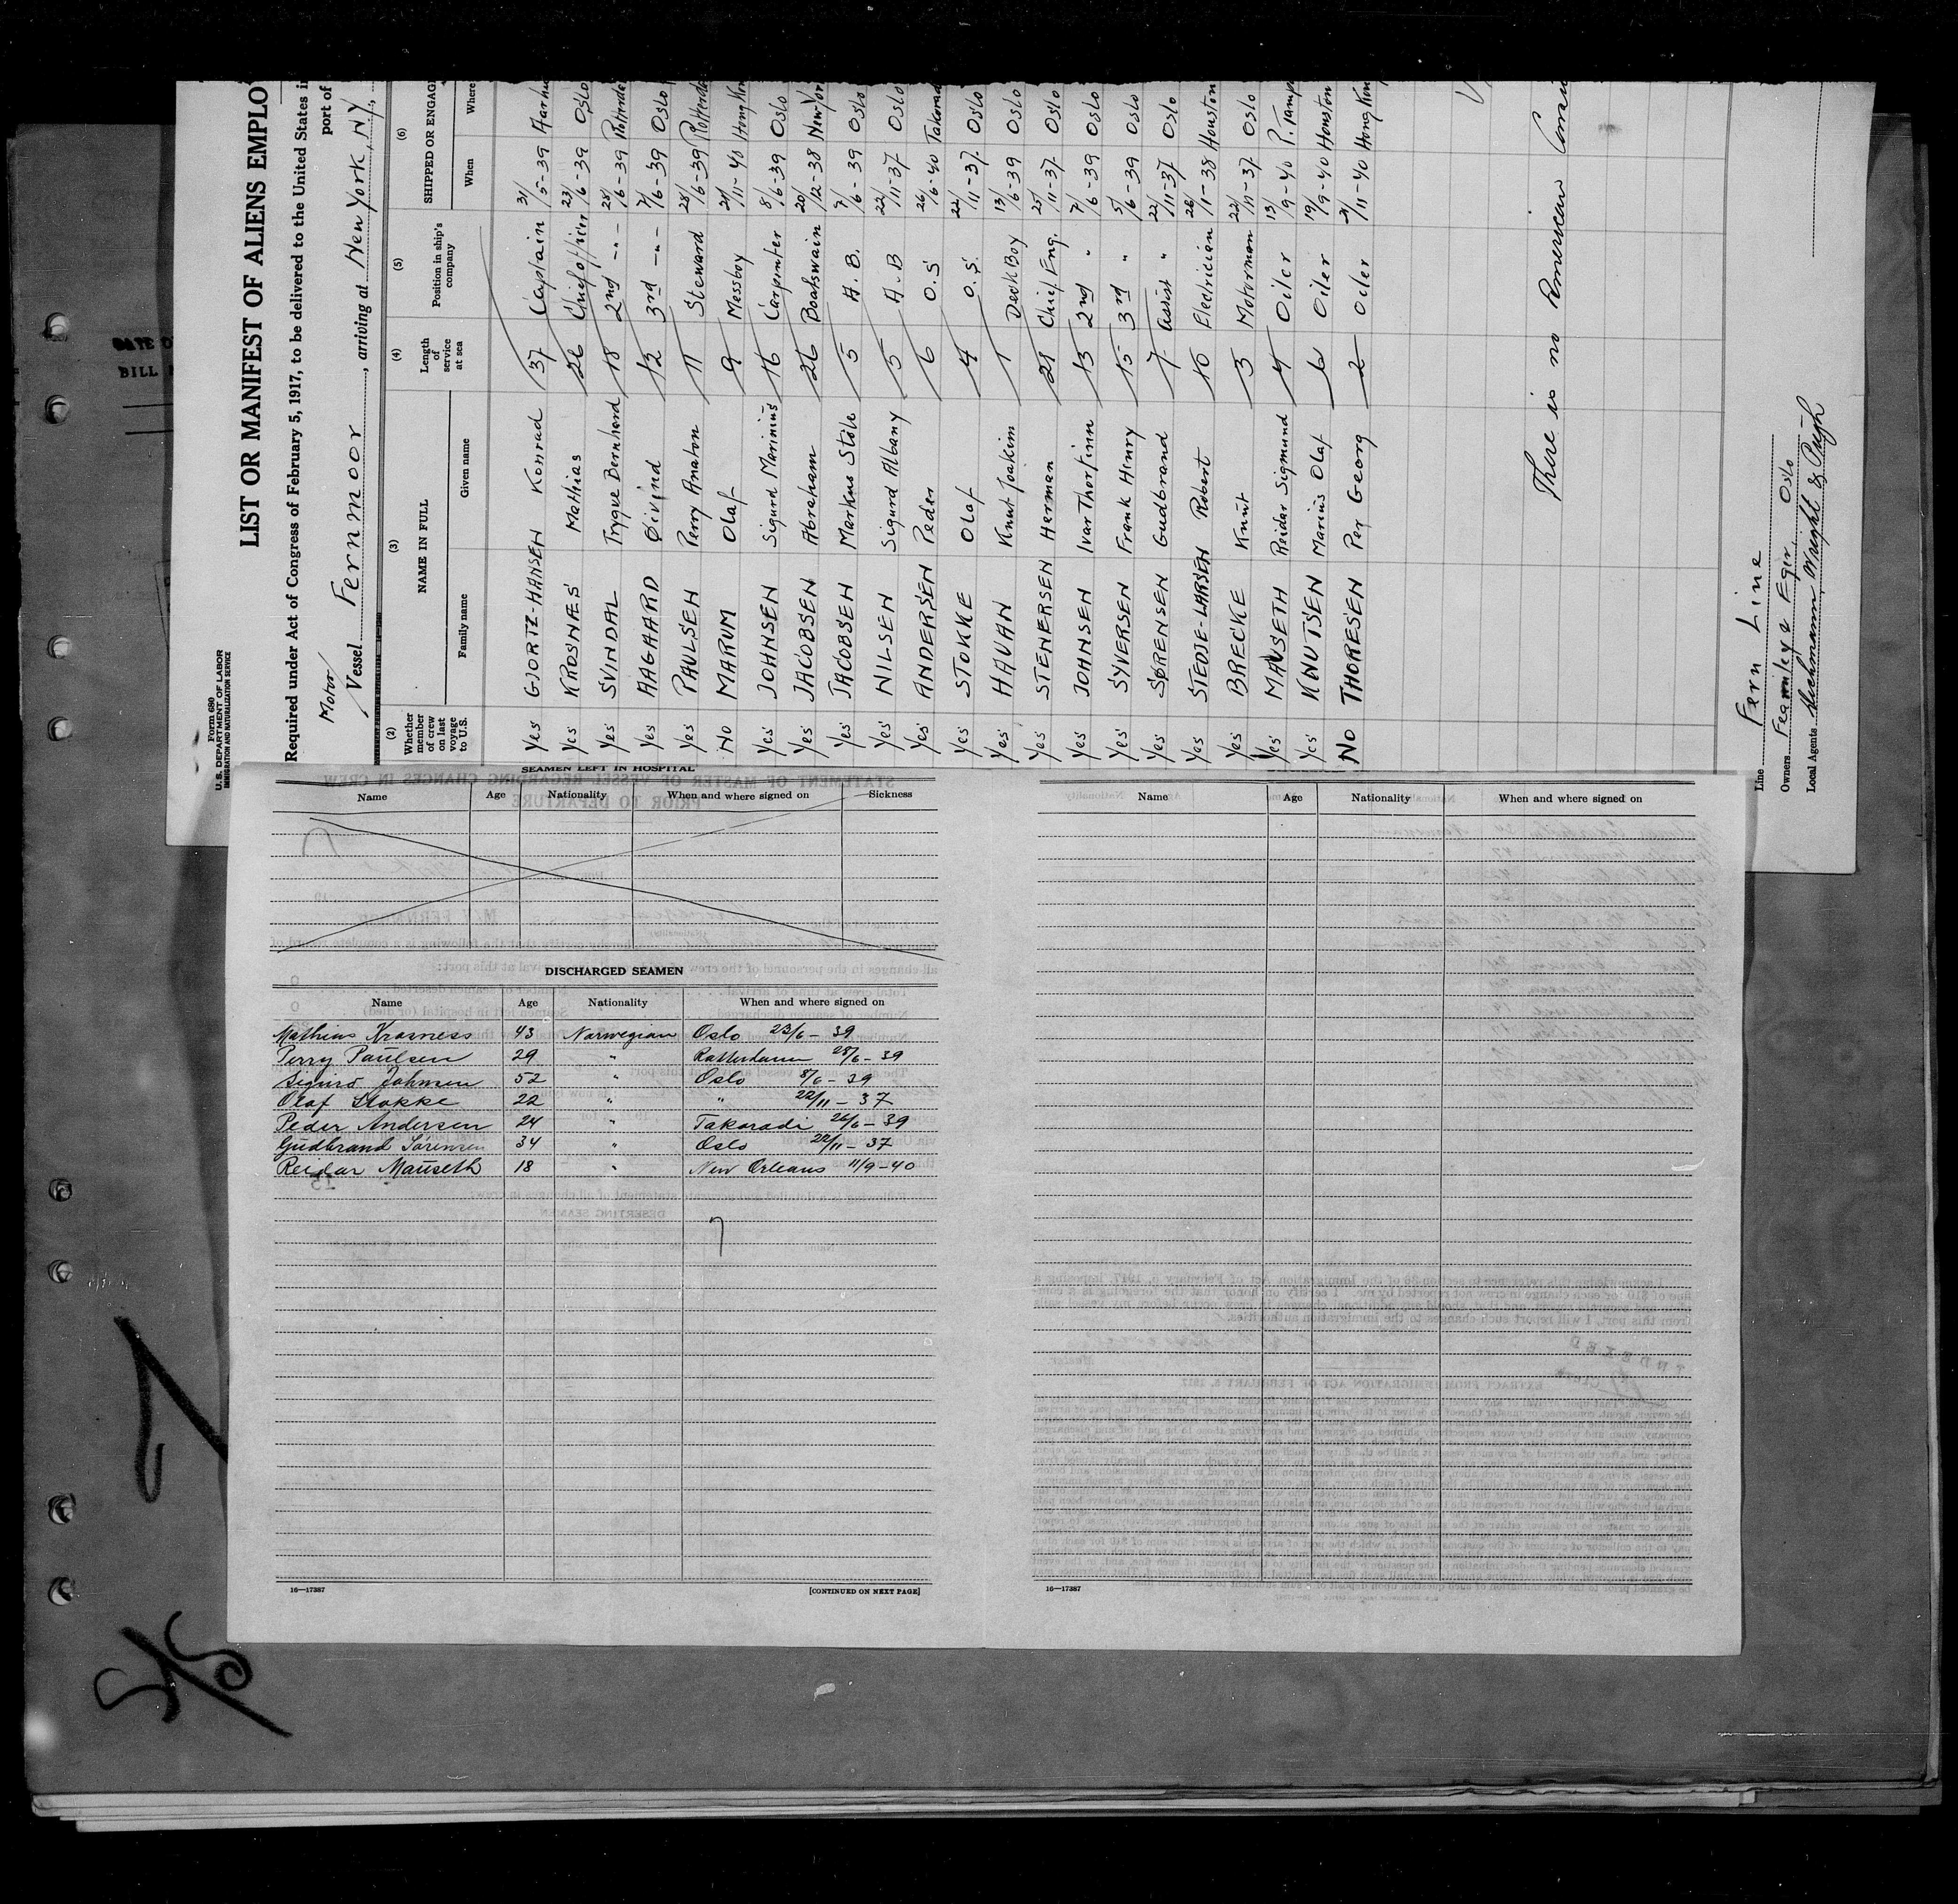 Form 680
U.S. DEPARTMENT OF LABOR
IMMIGRATION AND NATURALIZATION SERVICE
LIST OR MANIFEST OF ALIENS EMPLO
Required under Act of Congress of February 5, 1917, to be delivered to the United States
Motor
Vessel Fernmoor, arriving at New York, N.Y., port of
(2) (3) (4) (5) (6)
Whether member of crew on last voyage to U.S. NAME IN FULL Length of service at sea Position in ship's company SHIPPED OR ENGAG
Family name Given name When Where
Yes GJORTZ-HANSEN Konrad 37 Captain 31/5-39 Aarhu
Yes KROSNÆS Mathias 26 Chief officer 23/6-39 Oslo
Yes SVINDAL Trygve Bernhard 18 2nd -"- 28/6-39 Rotterda
Yes AAGAARD Øivind 12 3rd -"- 7/6-39 Oslo
Yes PAULSEN Perry Anaton 11 Steward 28/6-39 Rotterda
No MARUM Olaf 9 Messboy 21/11-40 Hong Kon
Yes JOHNSEN Sigurd Marinius 16 Carpenter 8/6-39 Oslo
Yes JACOBSEN Abraham 26 Boatswain 20/12-38 New-Yor
Yes JACOBSEN Markus Ståle 5 A.B. 7/6-39 Oslo
Yes NILSEN Sigurd Albany 5 A.B 22/11-37 Oslo
Yes ANDERSEN Peder 6 O.S 26/6-40 Takorad
Yes STOKKE Olaf 4 O.S. 22/11-37. Oslo
Yes HAVAN Knut Joakim 1 Deck Boy 13/6-39 Oslo
Yes STENERSEN Herman 21 Chief Eng. 25/11-37 Oslo
Yes JOHNSEN Ivar Thorfinn 13 2nd " 7/6-39 Oslo
Yes SYVERSEN Frank Henry 15 3rd " 5/6-39 Oslo
Yes SØRENSEN Gudbrand 7 Assist " 22/11-37 Oslo
Yes STEDJE-LARSEN Robert 10 Electrician 26/1-38 Houston
Yes BRECKE Knut 3 Motorman 22/11-37 Oslo
Yes MAUSETH Reidar Sigmund 4 Oiler 13/9-40 P. Tamp
Yes KNUTSEN Marius Olaf 6 Oiler 19/9-40 Houston
No THORESEN Per Georg 2 Oiler 21/11-40 Hong Kon
There is no American
Line Fern Line
Owners Fearnley & Eger, Oslo
Local Agents Wright & Pugh
SEAMEN LEFT IN HOSPITAL
Name Age Nationality When and where signed on Sickness
DISCHARGED SEAMEN
Name Age Nationality When and where signed on
Mathias Krosness 43 Norwegian Oslo 23/6-39
Perry Paulsen 29 " Rotterdam 28/6-39
Sigurd Johnsen 52 " Oslo 8/6-39
Olaf Stokke 22 " " 22/11-37
Peder Andersen 24 " Takoradi 26/6-39
Gudbrand Sørensen 34 " Oslo 22/11-37
Reidar Mauseth 18 " New Orleans 11/9-40
7
16—17387 [CONTINUED ON NEXT PAGE]
Name Age Nationality When and where signed on
16—17387